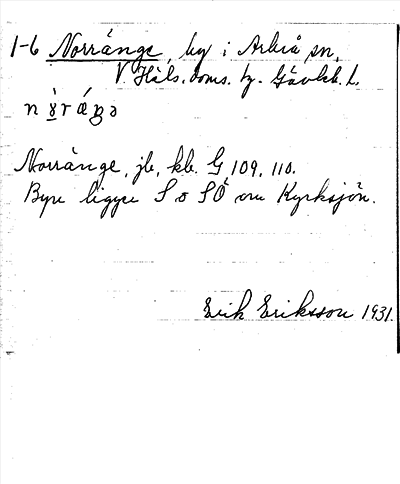 1-6 Norränge, by i Arbrå sn,
V. Häls. doms. tg. Gävleb. l.
Norränge, jb, kbl. G, 109, 110.
Byn ligger S o SÖ om Kyrksjön.
Erik Eriksson 1931.